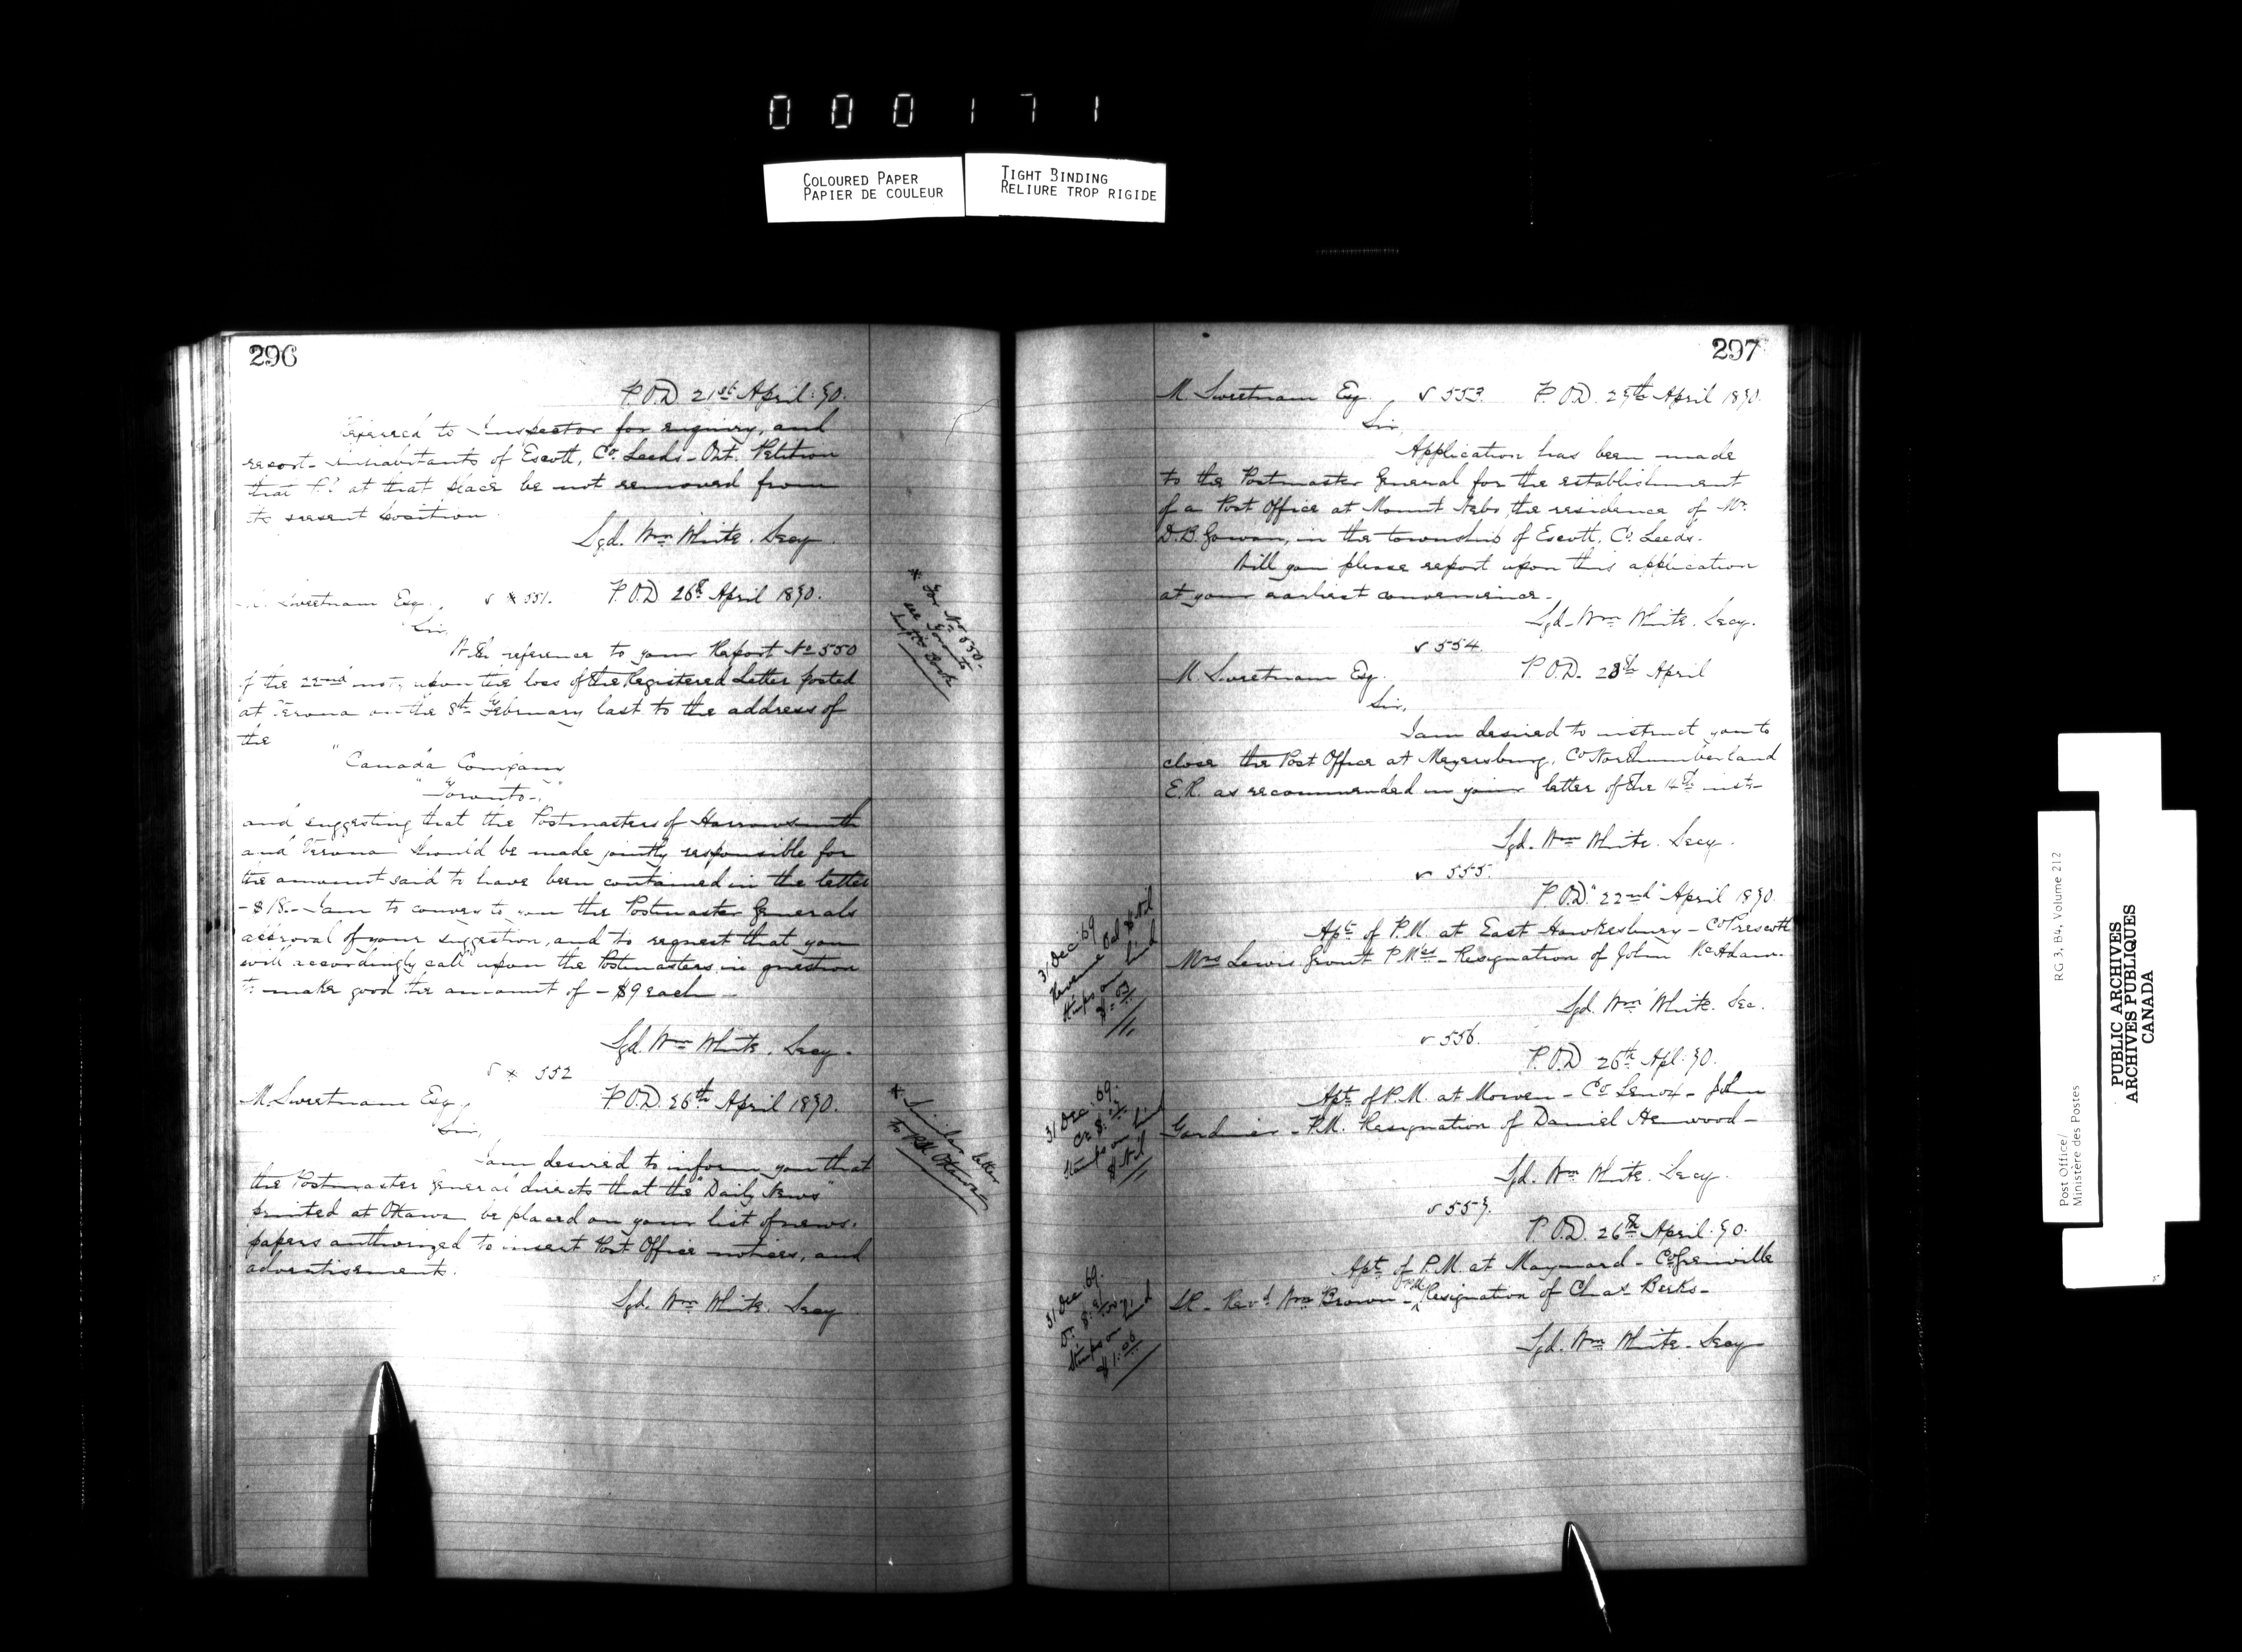 000171
COLOURED PAPER
PAPIER DE COULEUR
TIGHT BINDING
RELIURE TROP RIGIDE
296
P.O.D. 21st April. 70.
Referred to Inspector for enquiry, and
report - inhabitants of Escott, Co Leeds - Ont. Petition
that P.O. at that place be not removed from
its present position.
Sgd. Wm White. Secy
M. Sweetnam Esq., √ * 551. P.O.D 26th April 1870.
Sir,
With reference to your Report No 550
of the 22nd inst, upon the loss of the Registered Letter posted
at Verona on the 8th February last to the address of
the
"Canada Company
" Toronto - "
and suggesting that the Postmasters of Harrowsmith
and Verona should be made jointly responsible for
the amount said to have been contained in the letter
- $18. - I am to convey to you the Postmaster Generals
approval of your suggestion, and to request that you
will accordingly call upon the Postmasters in question
to make good the amount of - $9 each -
Sgd. Wm White. Secy.
√ * 552
M. Sweetnam Esq, P.O.D. 26th April 1870.
Sir,
I am desired to inform you that
the Postmaster General directs that the "Daily News"
printed at Ottawa be placed on your list of news-
papers authorized to insert Post Office notices, and
advertisements.
Sgd. Wm White. Secy
* For No 550.
see Toronto
Insp's Book
* Similar letter
to P.M. Ottawa
297
M. Sweetnam Esq. √ 553. P.O.D. 27th April 1870.
Sir,
Application has been made
to the Postmaster General for the establishment
of a Post Office at Mount Nebo, the residence of Mr.
D.B. Gowan, in the township of Escott, Co. Leeds.
Will you please report upon this application
at your earliest convenience.
Sgd. Wm White. Secy.
√ 554.
M. Sweetnam Esq. P.O.D. 28th April
Sir,
I am desired to instruct you to
close the Post Office at Meyersburg, Co Northumberland
E.R. as recommended in your letter of the 14th inst -
Sgd. Wm White. Secy.
√ 555.
P.O.D. 22nd April 1870.
Apt of P.M. at East Hawkesbury - Co Prescott
Mrs Lewis Grout P.Mes - Resignation of John McAdam.
Sgd. Wm White. Sec.
31 Dec '69
Revenue Bal $ Nil
Stamps on hand
√ 556.
P.O.D 26th Apl. 70.
Apt of P.M. at Morven - Co Lenox - John
Gardiner - P.M. Resignation of Daniel Henwood -
Sgd. Wm White. Secy.
31 Dec. '69.
Stamps on hand
$ Nil
√ 557.
P.O.D. 26th April. 70.
Apt of P.M. at Maynard - Co Grenville
SR - Revd Wm Brown - P.M. Resignation of Chas Berks -
Sgd. Wm White. Secy
31 Dec '69.
Stamps on hand
Post Office/
Ministère des Postes
RG 3, B4, Volume 212
PUBLIC ARCHIVES
ARCHIVES PUBLIQUES
CANADA